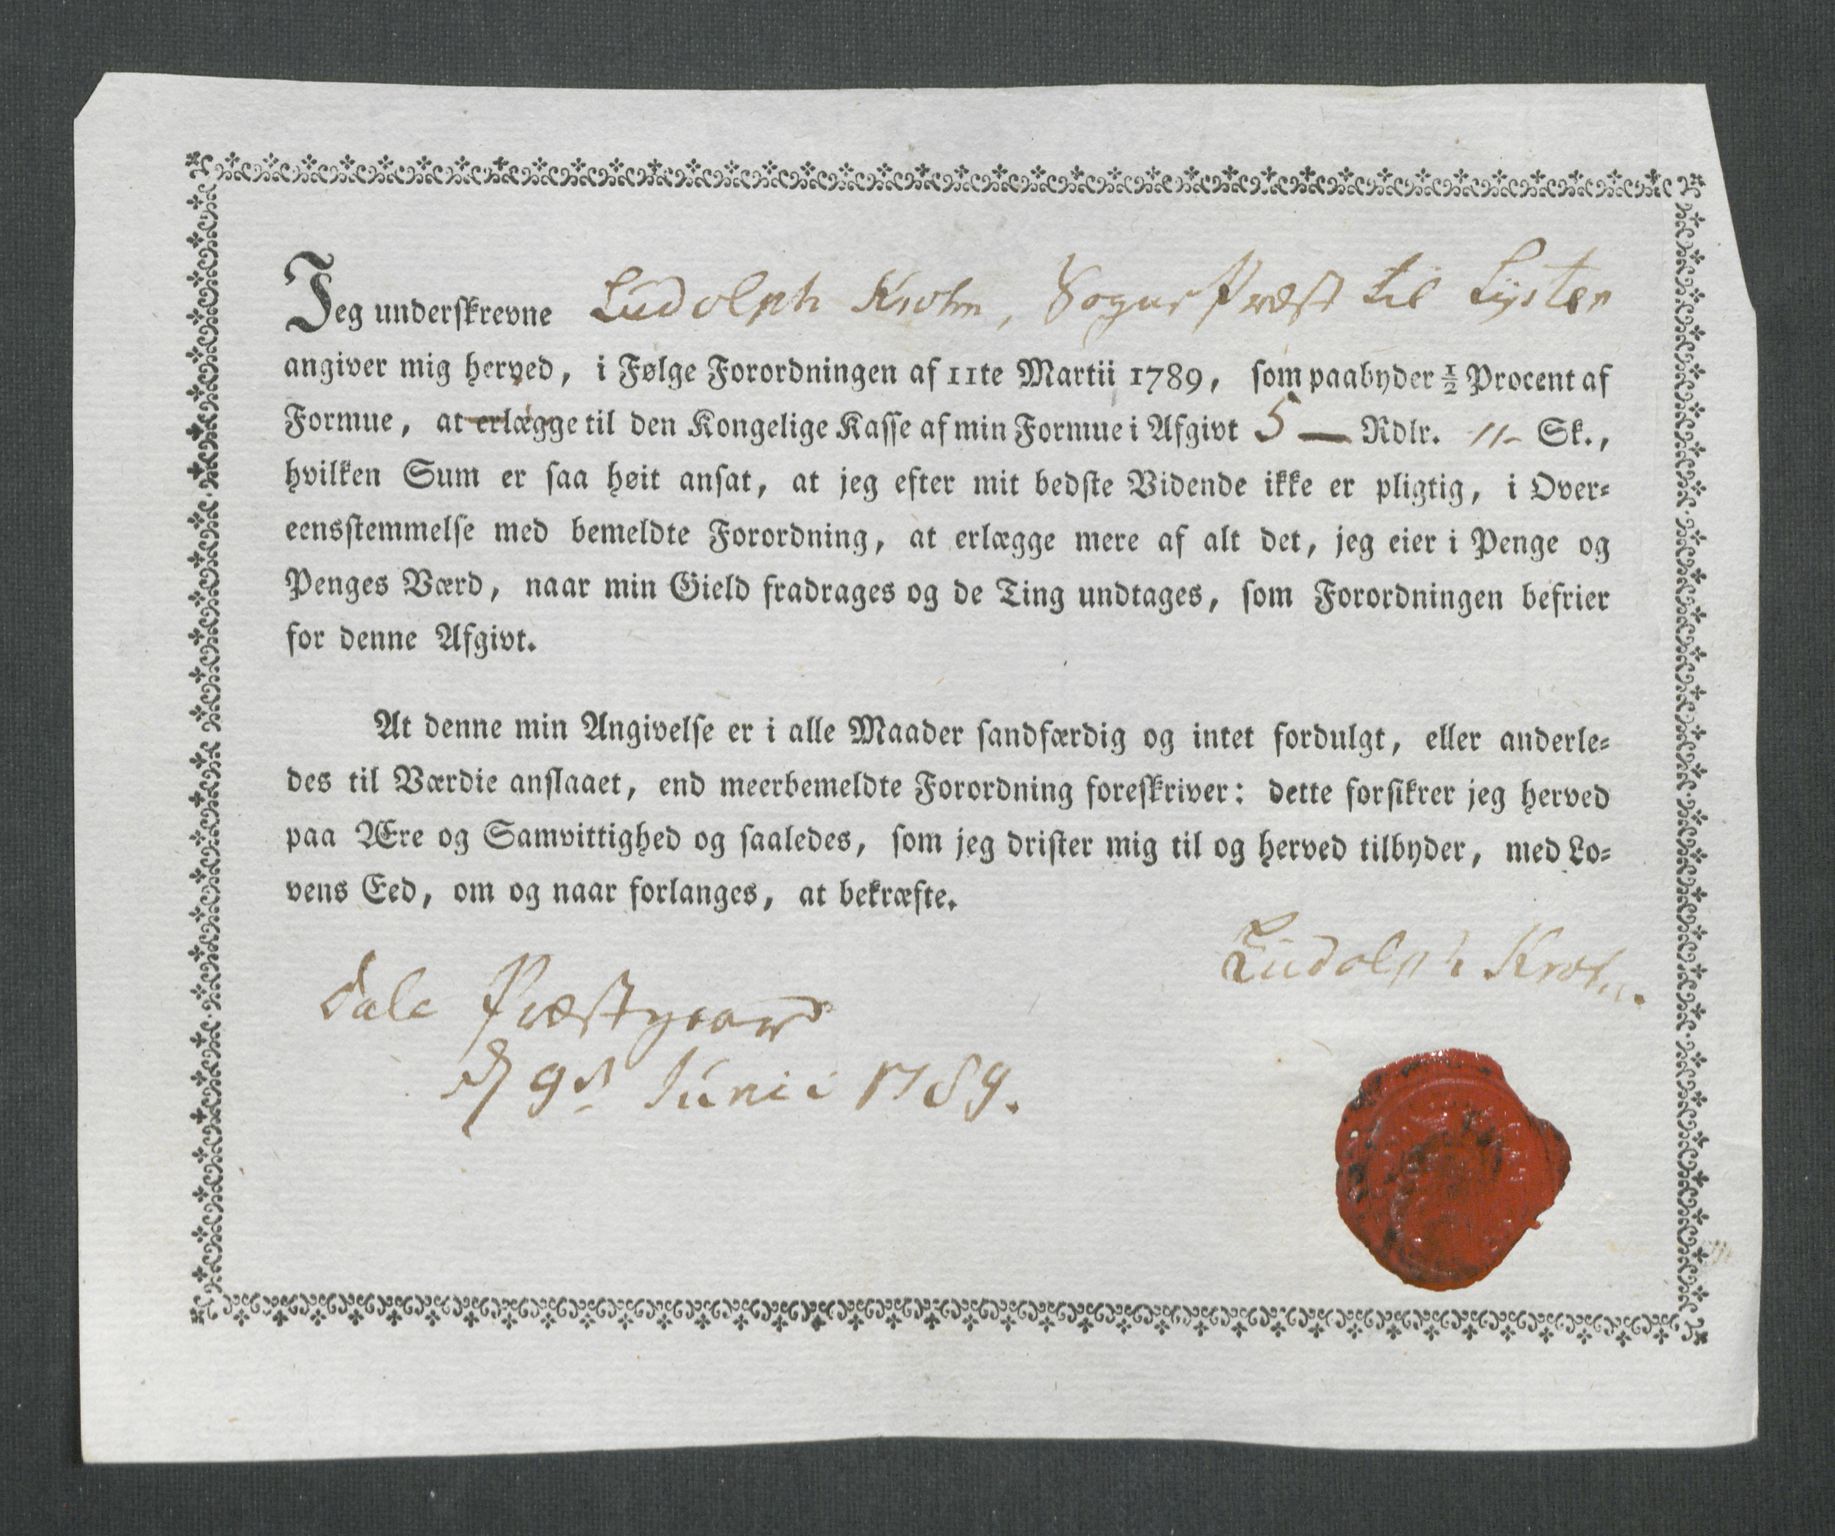 Jeg underskrevne Ludolph Krohn, Sogne Præst til Lyster
angiver mig herved, i Følge Forordningen af 11te Martii 1789, som paabyder 1/2 Procent af
Formue, at erlægge til den Kongelige Kasse af min Formue i Afgivt 5 — Rdlr. 11- Sk.,
hvilken Sum er saa høit ansat, at jeg efter mit bedste Vidende ikke er pligtig, i Over-
eensstemmelse med bemeldte Forordning, at erlægge mere af alt det, jeg eier i Penge og
Penges Værd, naar min Gield fradrages og de Ting undtages, som Forordningen befrier
for denne Afgivt.
At denne min Angivelse er i alle Maader sandfærdig og intet fordulgt, eller anderle-
des til Værdie anslaaet, end meerbemeldte Forordning foreskriver: dette forsikrer jeg herved
paa Ære og Samvittighed og saaledes, som jeg drister mig til og herved tilbyder, med Lo-
vens Eed, om og naar forlanges, at bekræfte.
Ludolph Krohn.
Dale Præstgaard
d 9d Junii 1789.